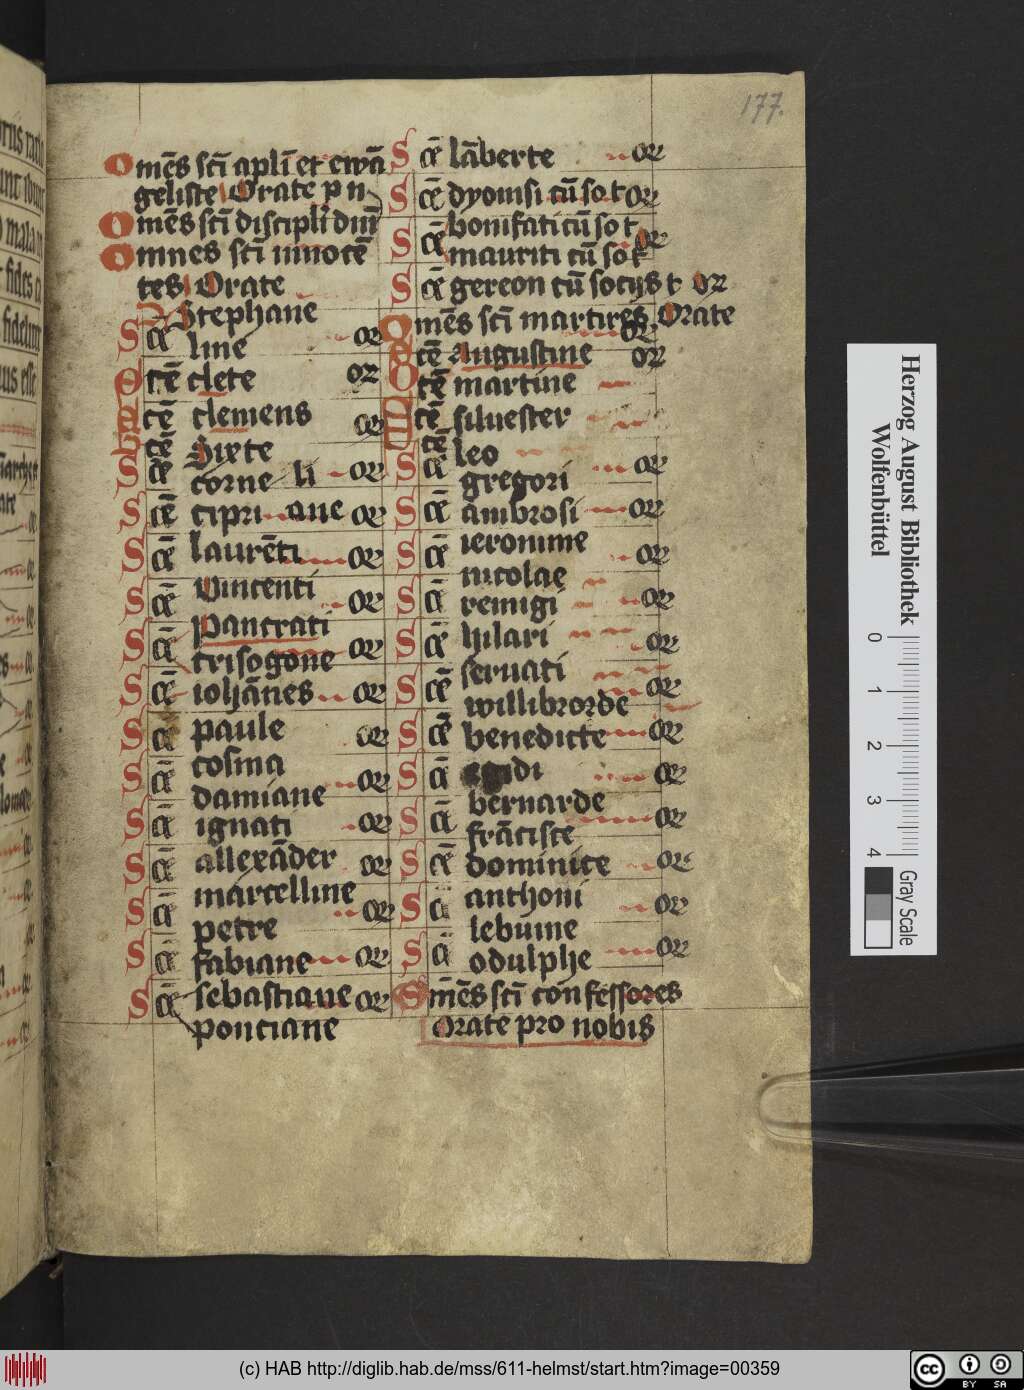 177.
Omēs scī aplī et ewā
geliste Orate p n
Omēs scī discipli dnī
Omnes scī innocē
tes Orate
Stephane
Scē line or
Scē clete or
Scē clemens or
Scē Sixte
Scē corne li or
Scē cipri ane or
Scē laurēti or
Scē vincenti or
Scē pancrati or
trisogone
Scē iohānes or
Scē paule or
Scē cosma or
damiane
Scē ignati or
Scē allexāder or
Scē marcelline or
petre
Scē fabiane or
Scē sebastiane or
ponciane
Scē lāberte or
Scē dyonisi cū so t or
bonifati cū so t
Scē mauriti cū so t or
Scē gereon cū socijs t or
Omēs scī martires Orate
Scē Augustine or
Scē martine or
Scē siluester
Scē leo
Scē gregori or
Scē ambrosi or
Scē ieronime or
nicolae
Scē remigi or
Scē hilari or
Scē seruati or
willibrorde
Scē benedicte or
Scē egidi or
Scē bernarde or
frācisce
Scē dominice or
Scē anthoni or
lebuine
Scē odulphe or
Omēs scī confessores
Orate pro nobis
Herzog August Bibliothek
Wolfenbüttel
0 1 2 3 4
Gray Scale
(c) HAB http://diglib.hab.de/mss/611-helmst/start.htm?image=00359
cc BY SA